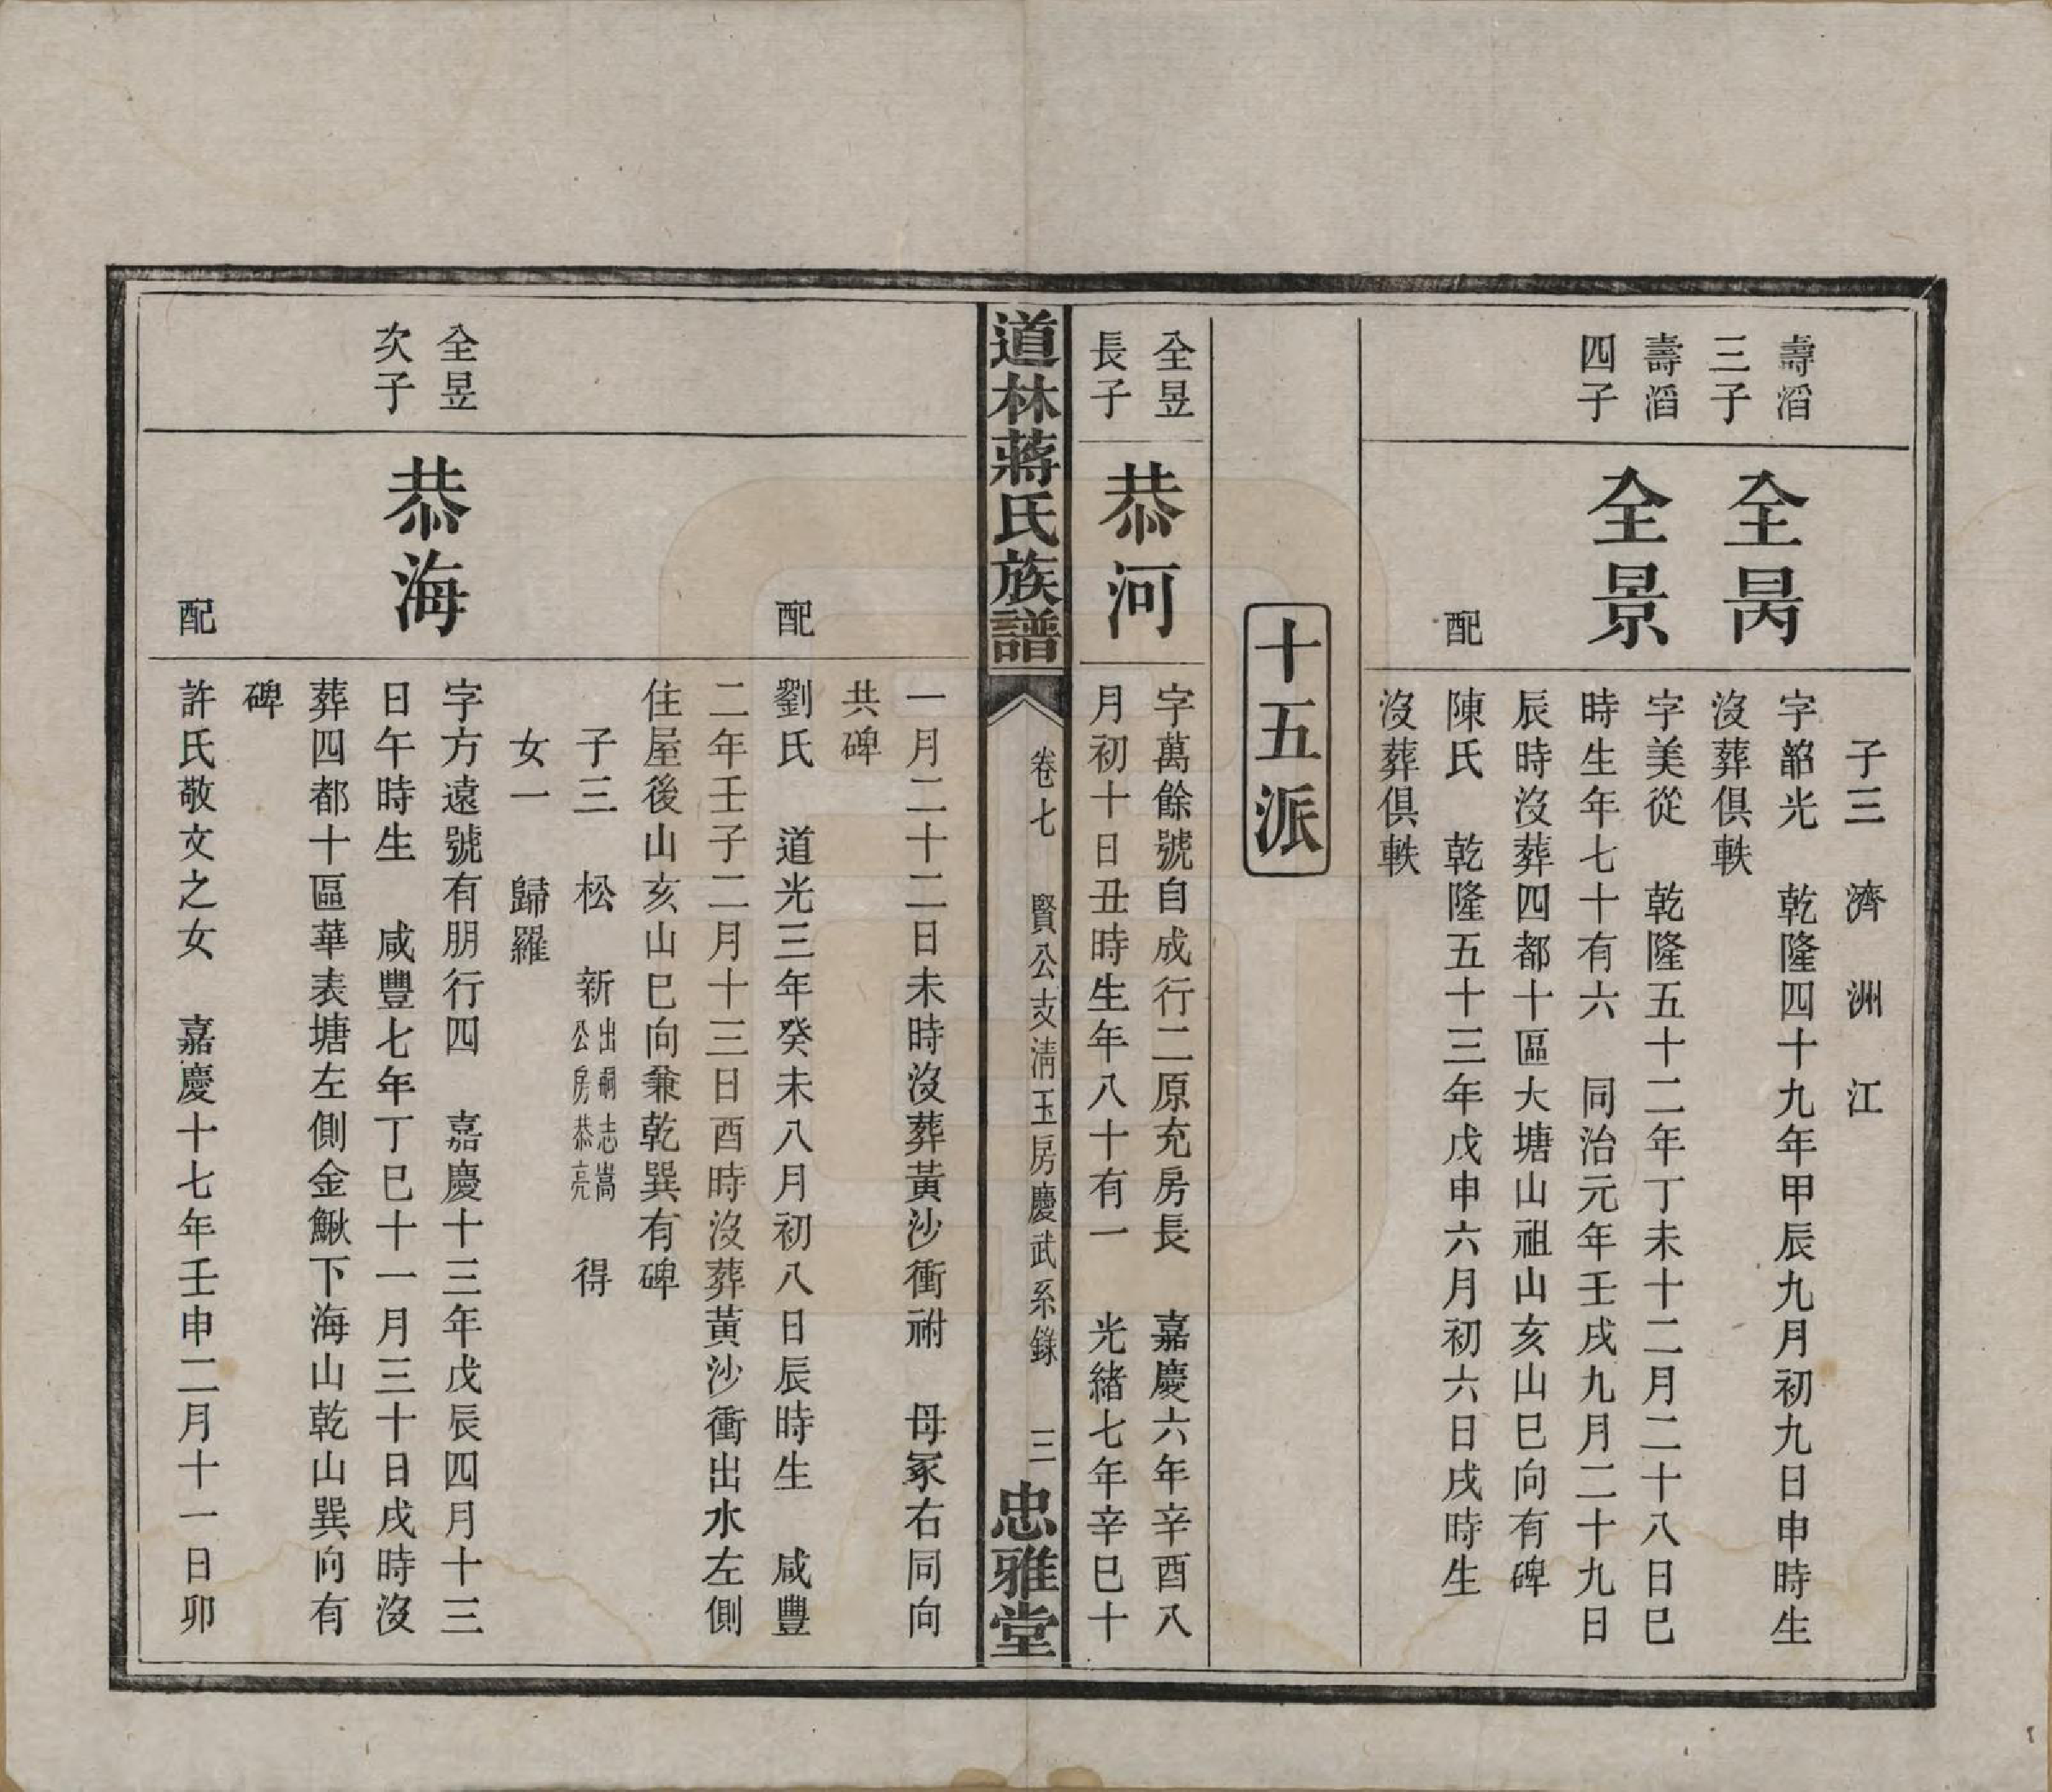 子三 濟 洲 江
壽滔
三子
全昺
字韶光 乾隆四十九年甲辰九月初九日申時生
沒葬俱軼
壽滔
四子
全景
字美從 乾隆五十二年丁未十二月二十八日巳
時生年七十有六 同治元年壬戌九月二十九日
辰時沒葬四都十區大塘山祖山亥山巳向有碑
配
陳氏 乾隆五十三年戊申六月初六日戌時生
沒葬俱軼
十五派
全昱
長子
恭河
字萬餘號自成行二原充房長 嘉慶六年辛酉八
月初十日丑時生年八十有一 光緒七年辛巳十
道林蔣氏族譜
卷七 賢公支清玉房慶武系錄 三
忠雅堂
一月二十二日未時沒葬黃沙衝祔 母冢右同向
共碑
配
劉氏 道光三年癸未八月初八日辰時生 咸豐
二年壬子二月十三日酉時沒葬黃沙衝出水左側
住屋後山亥山巳向兼乾巽有碑
子三 松 新出嗣志嵩公房恭亮 得
女一 歸羅
全昱
次子
恭海
字方遠號有朋行四 嘉慶十三年戊辰四月十三
日午時生 咸豐七年丁巳十一月三十日戌時沒
葬四都十區華表塘左側金鰍下海山乾山巽向有
碑
配
許氏敬文之女 嘉慶十七年壬申二月十一日卯